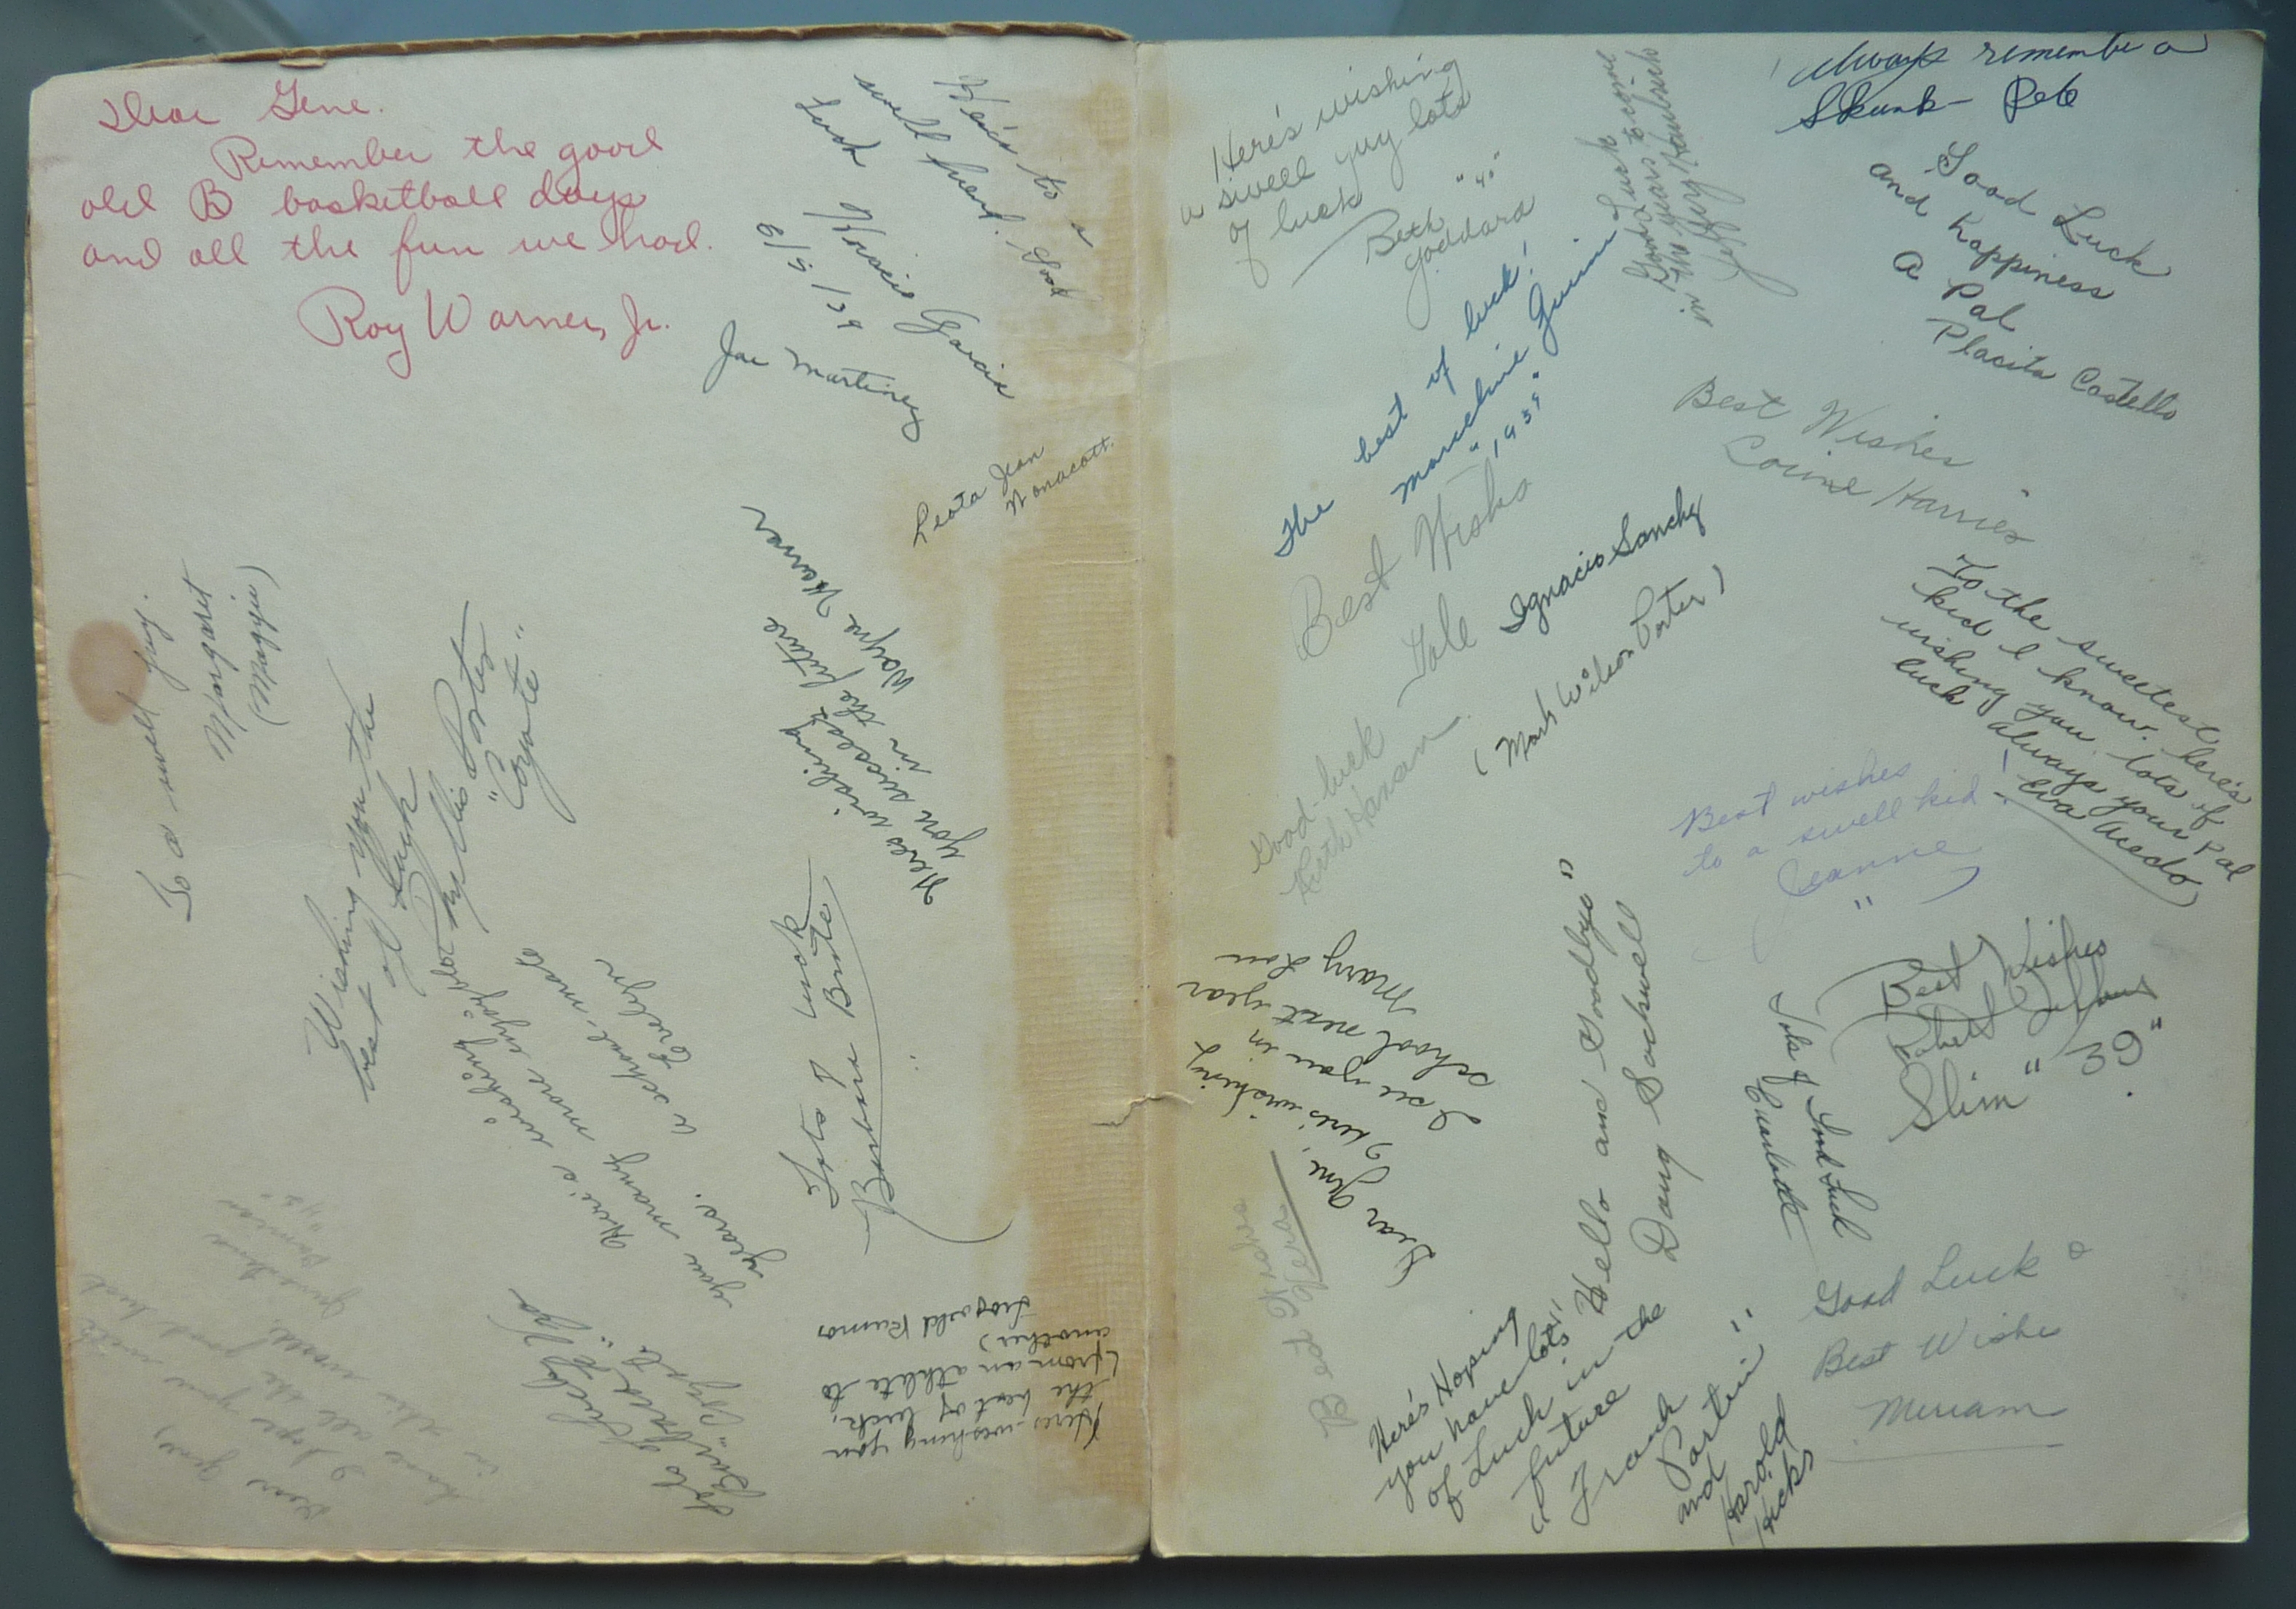 Dear Gene.
Remember the good
old B basketball days
and all the fun we had.
Roy Warner, Jr.
Here's to a
swell friend. Good
Luck
Garcia
6/5/39
Joe Martinez
Leota Jean
Wonacott.
To a swell guy.
Margaret
(Maggie)
Wishing you the
best of Luck
Phyllis Porter
"Coyote"
Heres wishing
you success
in the future
Wayne Warner
Here's wishing
you many more enjoyable
years.
a school-mate
Evelyn
Lots of Luck
Barbara
Heres wishing you
the best of luck,
(from an athlete to
another)
Ramos
Lots of Luck
Dear Gene,
I hope you
have all the good luck
in the world
Here's wishing
a swell guy lots
of luck
Beth "40"
Goddard
Good Luck
in the years to come
Jeffery
Always remember a
Skunk - Pete
Good Luck
and happiness
a Pal
Placita Costello
The best of luck!
Marceline
"1939"
Best Wishes
Corine Harries
Best Wishes
Ignacio Sanchez
(Mark Wilson Porter)
To the sweetest
kid I know. here's
wishing you lots of
luck always your Pal
Eva
Good-luck
Ruth Hanan
Best wishes
to a swell kid!
Jeanne
Dear Gene,
Here's wishing
I see you in
school next year
Mary Lou
Hello and Goodbye"
Doug Sackwell
Best Wishes
Robert
Slim "39"
Lots of Good Luck
Best Wishes
Vera
Here's Hoping
you have lots
of Luck in the
future
"Frank Partin"
and
Harold
Hicks
Good Luck &
Best Wishes
Miriam